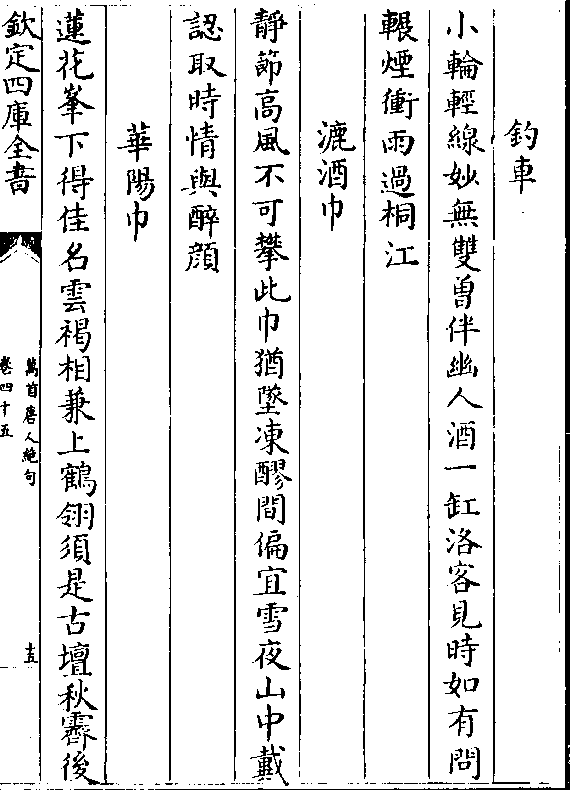 釣車
小輪輕線妙無雙曽伴幽人酒一缸洛客見時如有問
輾煙衝雨過桐江
漉酒巾
靜節高風不可攀此巾猶墜凍醪間偏宜雪夜山中戴
認取時情與醉顔
華陽巾
蓮花峯下得佳名雲褐相兼上鶴翎須是古壇秋霽後
欽定四庫全書
萬首唐人絶句
卷四十五